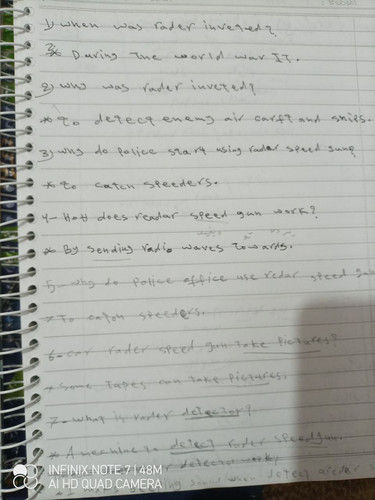 1) When was rader inveted?
* During The world war II.
2) why was rader inveted?
* to detect enemy air carft and ships.
3) why do police start using radar speed gung
* to catch speeders.
4- How does reader speed gun work?
* By sending radio waves towards.
5- why do police office use redar speed gun
* To catch steeders.
6- car rader speed gun take pictures?
* Some types can take pictures.
7- what is rader detector?
* A machine to detect rader speedgun.
rader detector work
sound when detect
INFINIX NOTE 7 | 48M
AI HD QUAD CAMERA